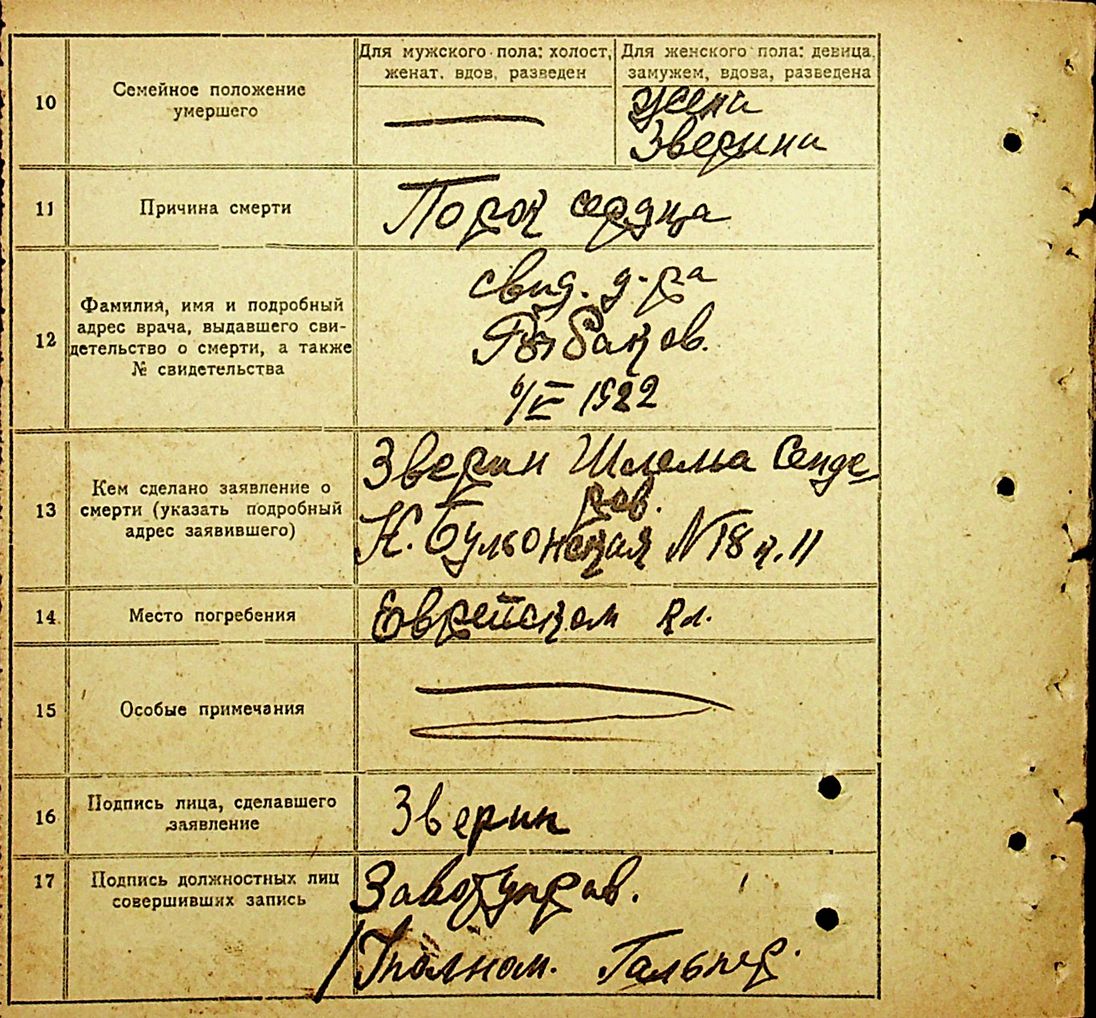 10
Семейное положение
умершего
Для мужского пола: холост,
женат, вдов, разведен
Для женского пола: девица,
замужем, вдова, разведена
жена
Зверина
11
Причина смерти
Порок сердца
12
Фамилия, имя и подробный
адрес врача, выдавшего сви-
детельство о смерти, а также
№ свидетельства
свид. д-ра
Рыбаков.
1922
13
Кем сделано заявление о
смерти (указать подробный
адрес заявившего)
Зверин Шлема Сенде-
ров.
Н. Бульонская № 18 к. 11
14
Место погребения
Еврейском кл.
15
Особые примечания
16
Подпись лица, сделавшего
заявление
Зверин
17
Подпись должностных лиц
совершивших запись
Гальпер.